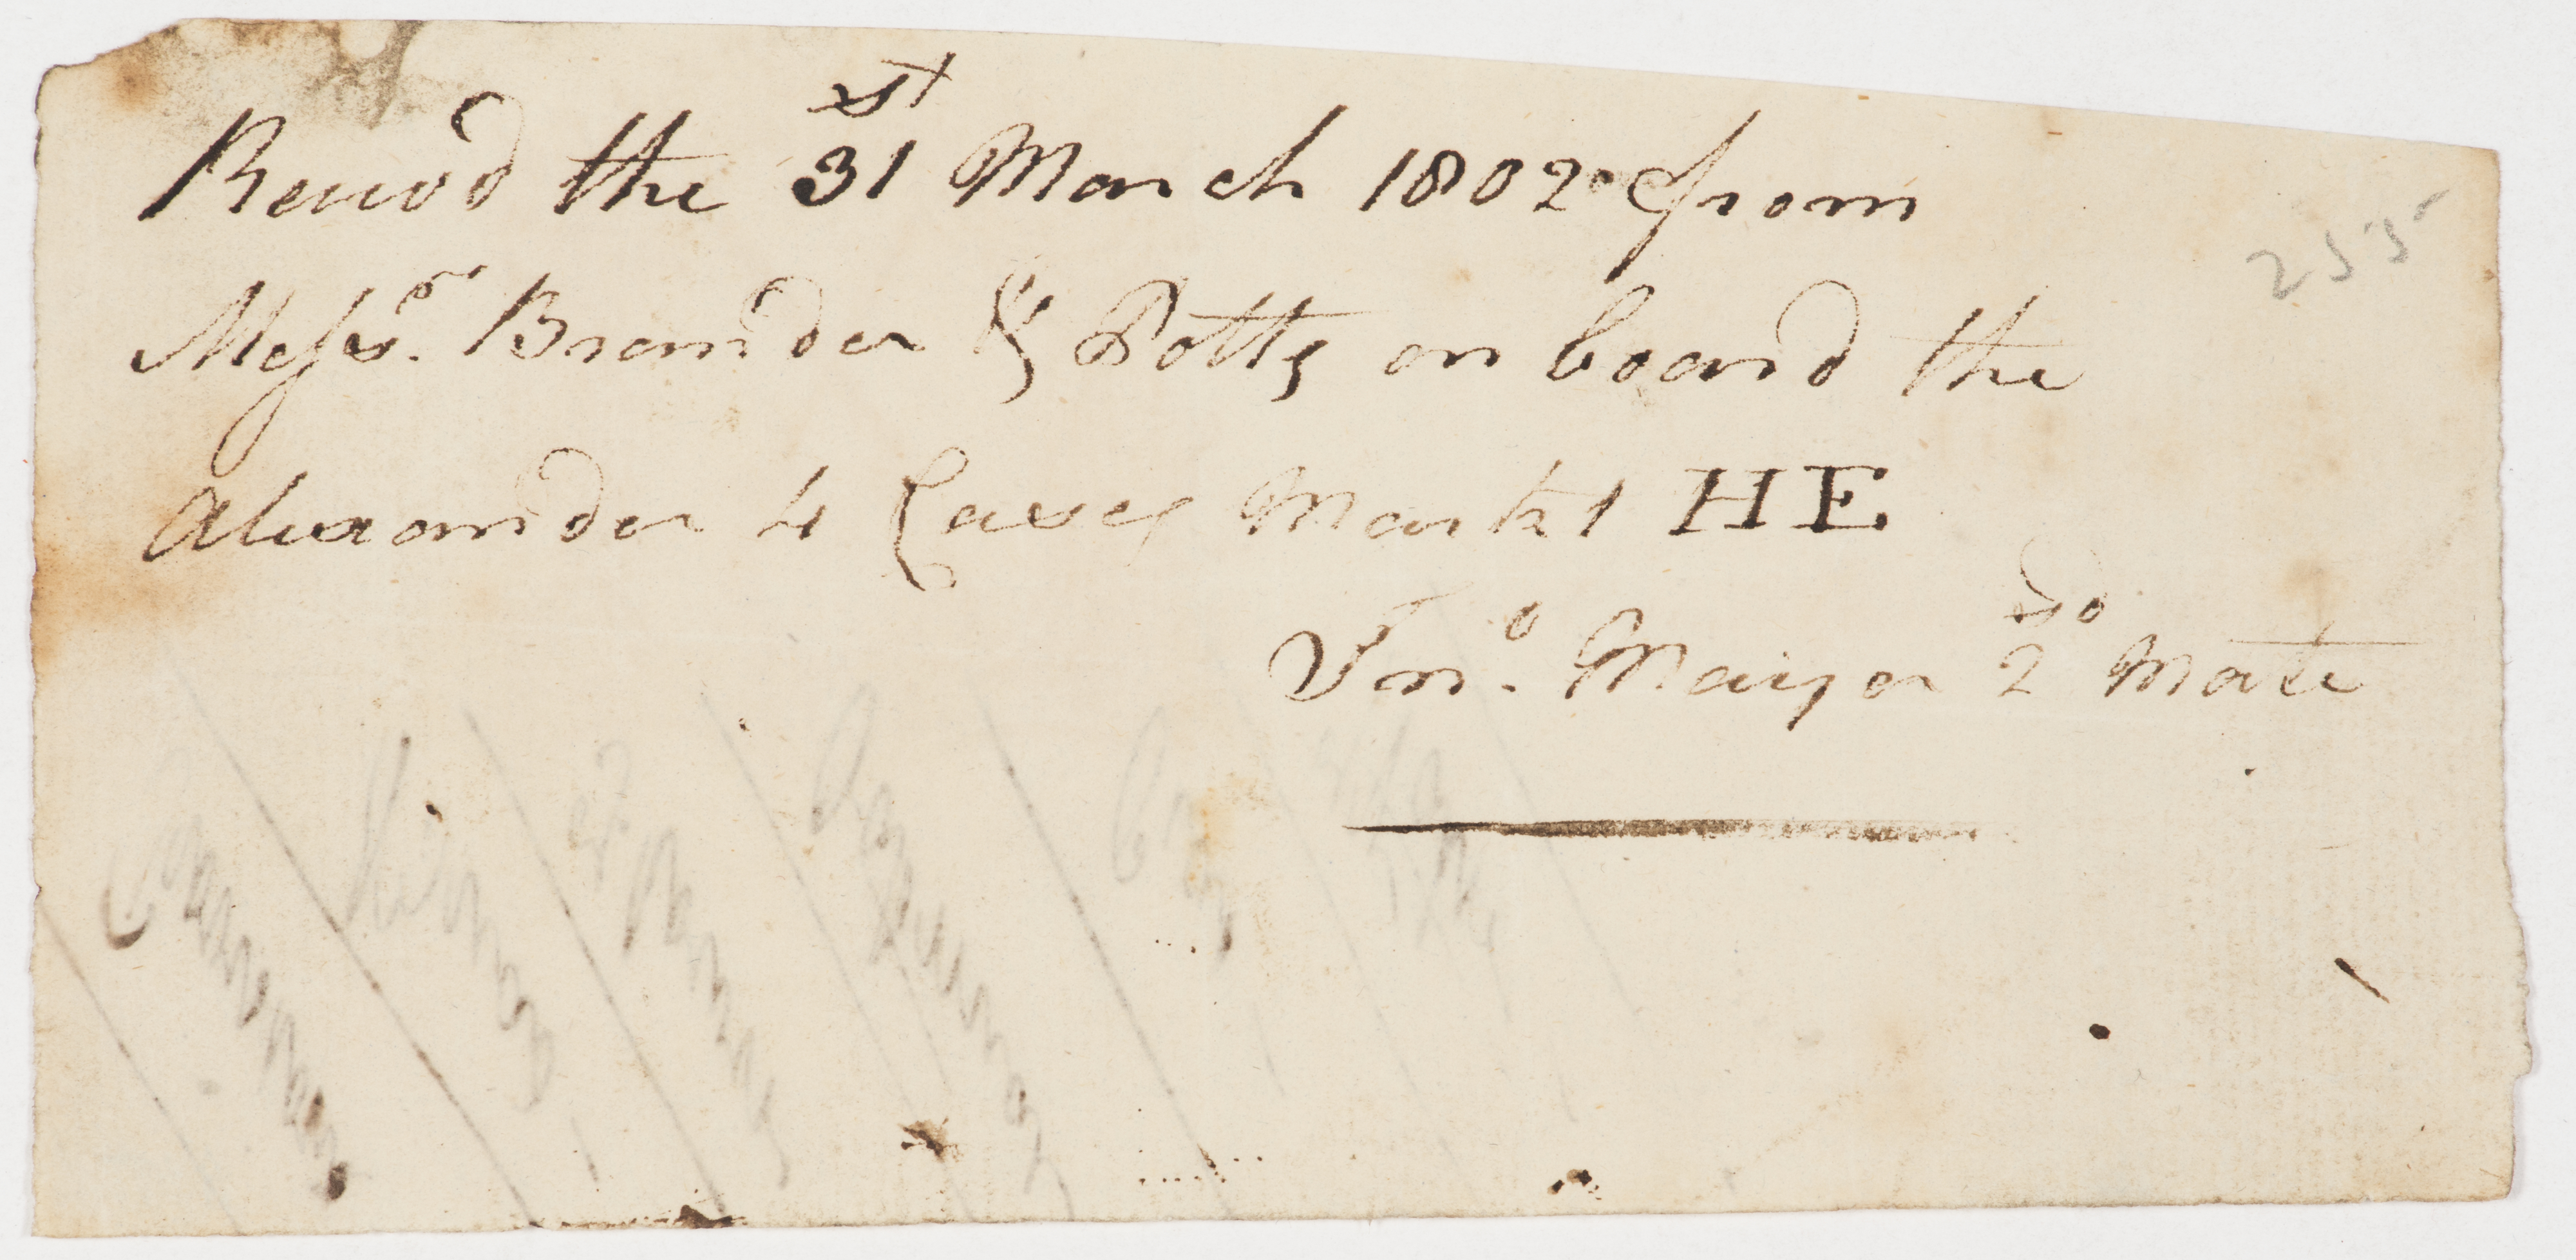 Received the 31st March 1802 from
255
Messrs. Brander & Potts on board the
Alexander 4 Cases Markt HE
Jno. Maiyor 2do Mate